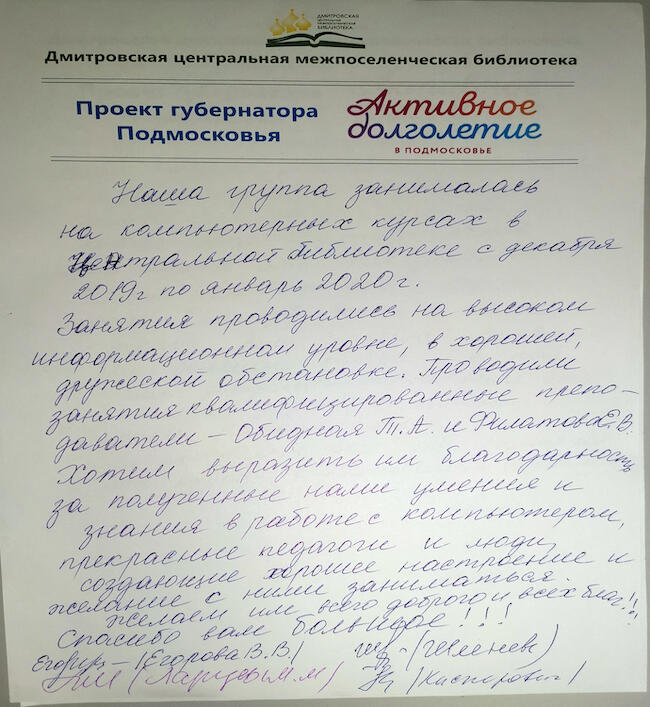 ДМИТРОВСКАЯ
ЦЕНТРАЛЬНАЯ
МЕЖПОСЕЛЕНЧЕСКАЯ
БИБЛИОТЕКА
Дмитровская центральная межпоселенческая библиотека
Проект губернатора
Подмосковья
Активное
долголетие
В ПОДМОСКОВЬЕ
Наша группа занималась
на компьютерных курсах в
центральной библиотеке с декабря
2019г по январь 2020г.
Занятия проводились на высоком
информационном уровне, в хорошей,
дружеской обстановке. Проводили
занятия квалифицированные препо-
даватели – Обидная Т.А. и Филатова Е.В.
Хотим выразить им благодарность
за полученные нами умения и
знания в работе с компьютером,
прекрасные педагоги и люди,
создающие хорошее настроение и
желание с ними заниматься.
Желаем им всего доброго и всех благ!!
Спасибо вам большое!!!
(Егорова В.В.)